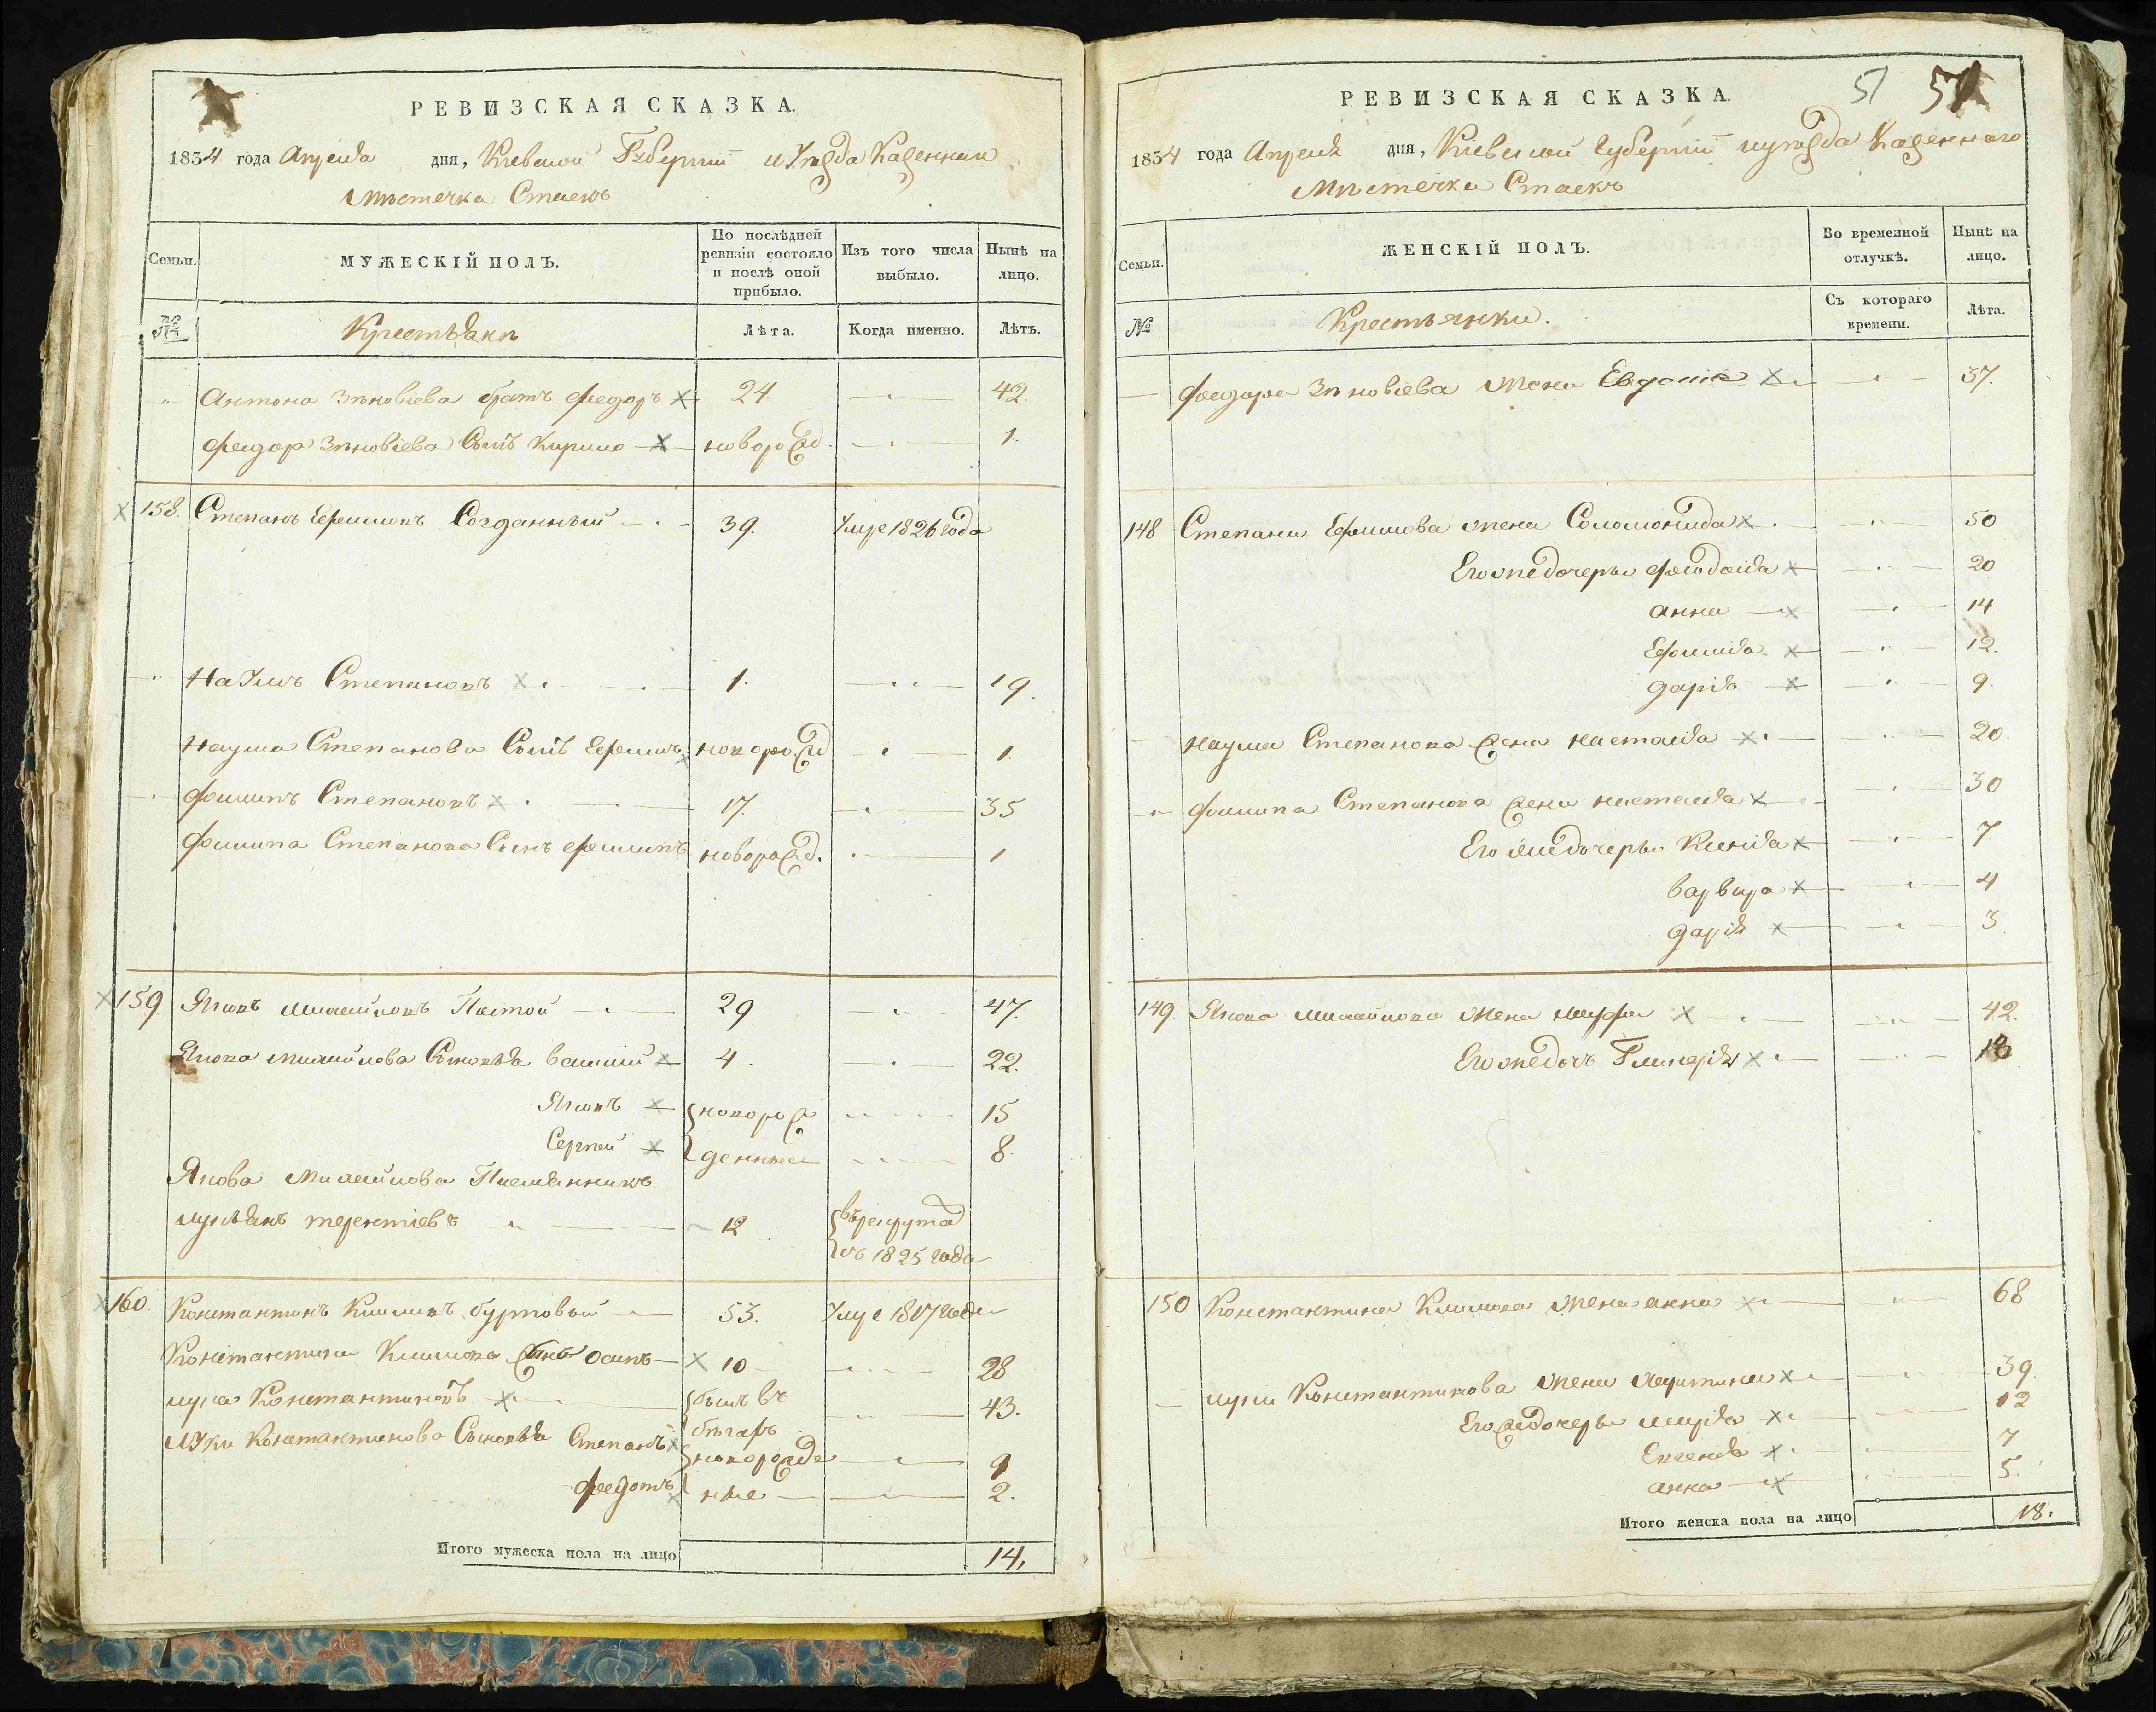 РЕВИЗСКАЯ СКАЗКА.
1834 года Апреля дня, Киевской Губернии и Уезда Казенного
Мѣстечка Стаекъ
Семьи.
МУЖЕСКІЙ ПОЛЪ.
По послѣдней ревизіи состояло и послѣ оной прибыло.
Изъ того числа выбыло.
Нынѣ на лицо.
№
Крестьяне
Лѣта.
Когда именно.
Лѣтъ.
Антона Зѣновіева братъ Федоръ 24. 42.
Федора Зѣновіева Сынъ Кирило новорожд. 1.
158. Степанъ Ефимовъ 39. Умре 1826 года
Наумъ Степановъ 1. 19.
Наума Степанова Сынъ Ефимъ новорожд 1.
Филипъ Степановъ 17. 35
Филипа Степанова Сынъ новорожд. 1
159 Яковъ Михайловъ 29 47.
Якова Михайлова Сыновья Василий 4. 22.
Яковъ новорож 15
Сергей денные 8.
Якова Михайлова Племянникъ
Терентіевъ 12 въ рекрута
въ 1825 года
160. Константинъ Климовъ 53. Умре 1817 года
Константина Климова Сынъ Осипъ 10 28
Лука Константиновъ былъ въ 43.
бѣгахъ
Луки Константинова Сыновья Степанъ новорожде 9
Федотъ ные 2.
Итого мужеска пола на лицо 14,
РЕВИЗСКАЯ СКАЗКА.
51 51
1834 года Апреля дня, Киевской Губерніи и уезда Казенного
Мѣстечка Стаекъ
Семьи.
ЖЕНСКІЙ ПОЛЪ.
Во временной отлучкѣ.
Нынѣ на лицо.
№
Крестьянки.
Съ котораго времени.
Лѣта.
Федора Зѣновіева жена Евдокія 37.
148 Степана Ефимова жена Соломонида 50
Его же дочеры Феодосія 20
анна 14
Ефимія 12.
Дарія 9.
Наума Степанова жена настасія 20.
Филипа Степанова жена настасія 30
Его же дочеры Ксенія 7
варвара 4
дарія 3
149. Якова Михайлова жена марфа 42.
Его же дочь Гликерія
150 Константина Климова жена анна 68
Луки Константинова жена Христина 39.
Его же дочеры марія 12
Евгенія 7
анна 5.
Итого женска пола на лицо 18.